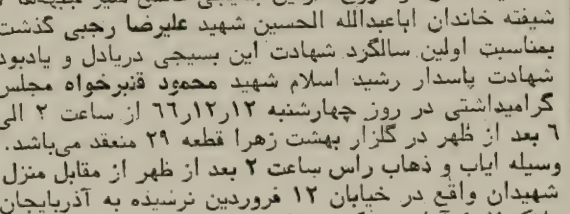 شیفته خاندان اباعبدالله الحسین شهید علیرضا رجبی گذشت
بمناسبت اولین سالگرد شهادت این بسیجی دریادل و یادبود
شهادت پاسدار رشید اسلام شهید محمود قنبرخواه مجلس
گرامیداشتی در روز چهارشنبه ۱۲ر۱۲ر۶۶ از ساعت ۲ الی
۶ بعد از ظهر در گلزار بهشت زهرا قطعه ۲۹ منعقد می‌باشد.
وسیله ایاب و ذهاب راس ساعت ۲ بعد از ظهر از مقابل منزل
شهیدان واقع در خیابان ۱۲ فروردین نرسیده به آذربایجان